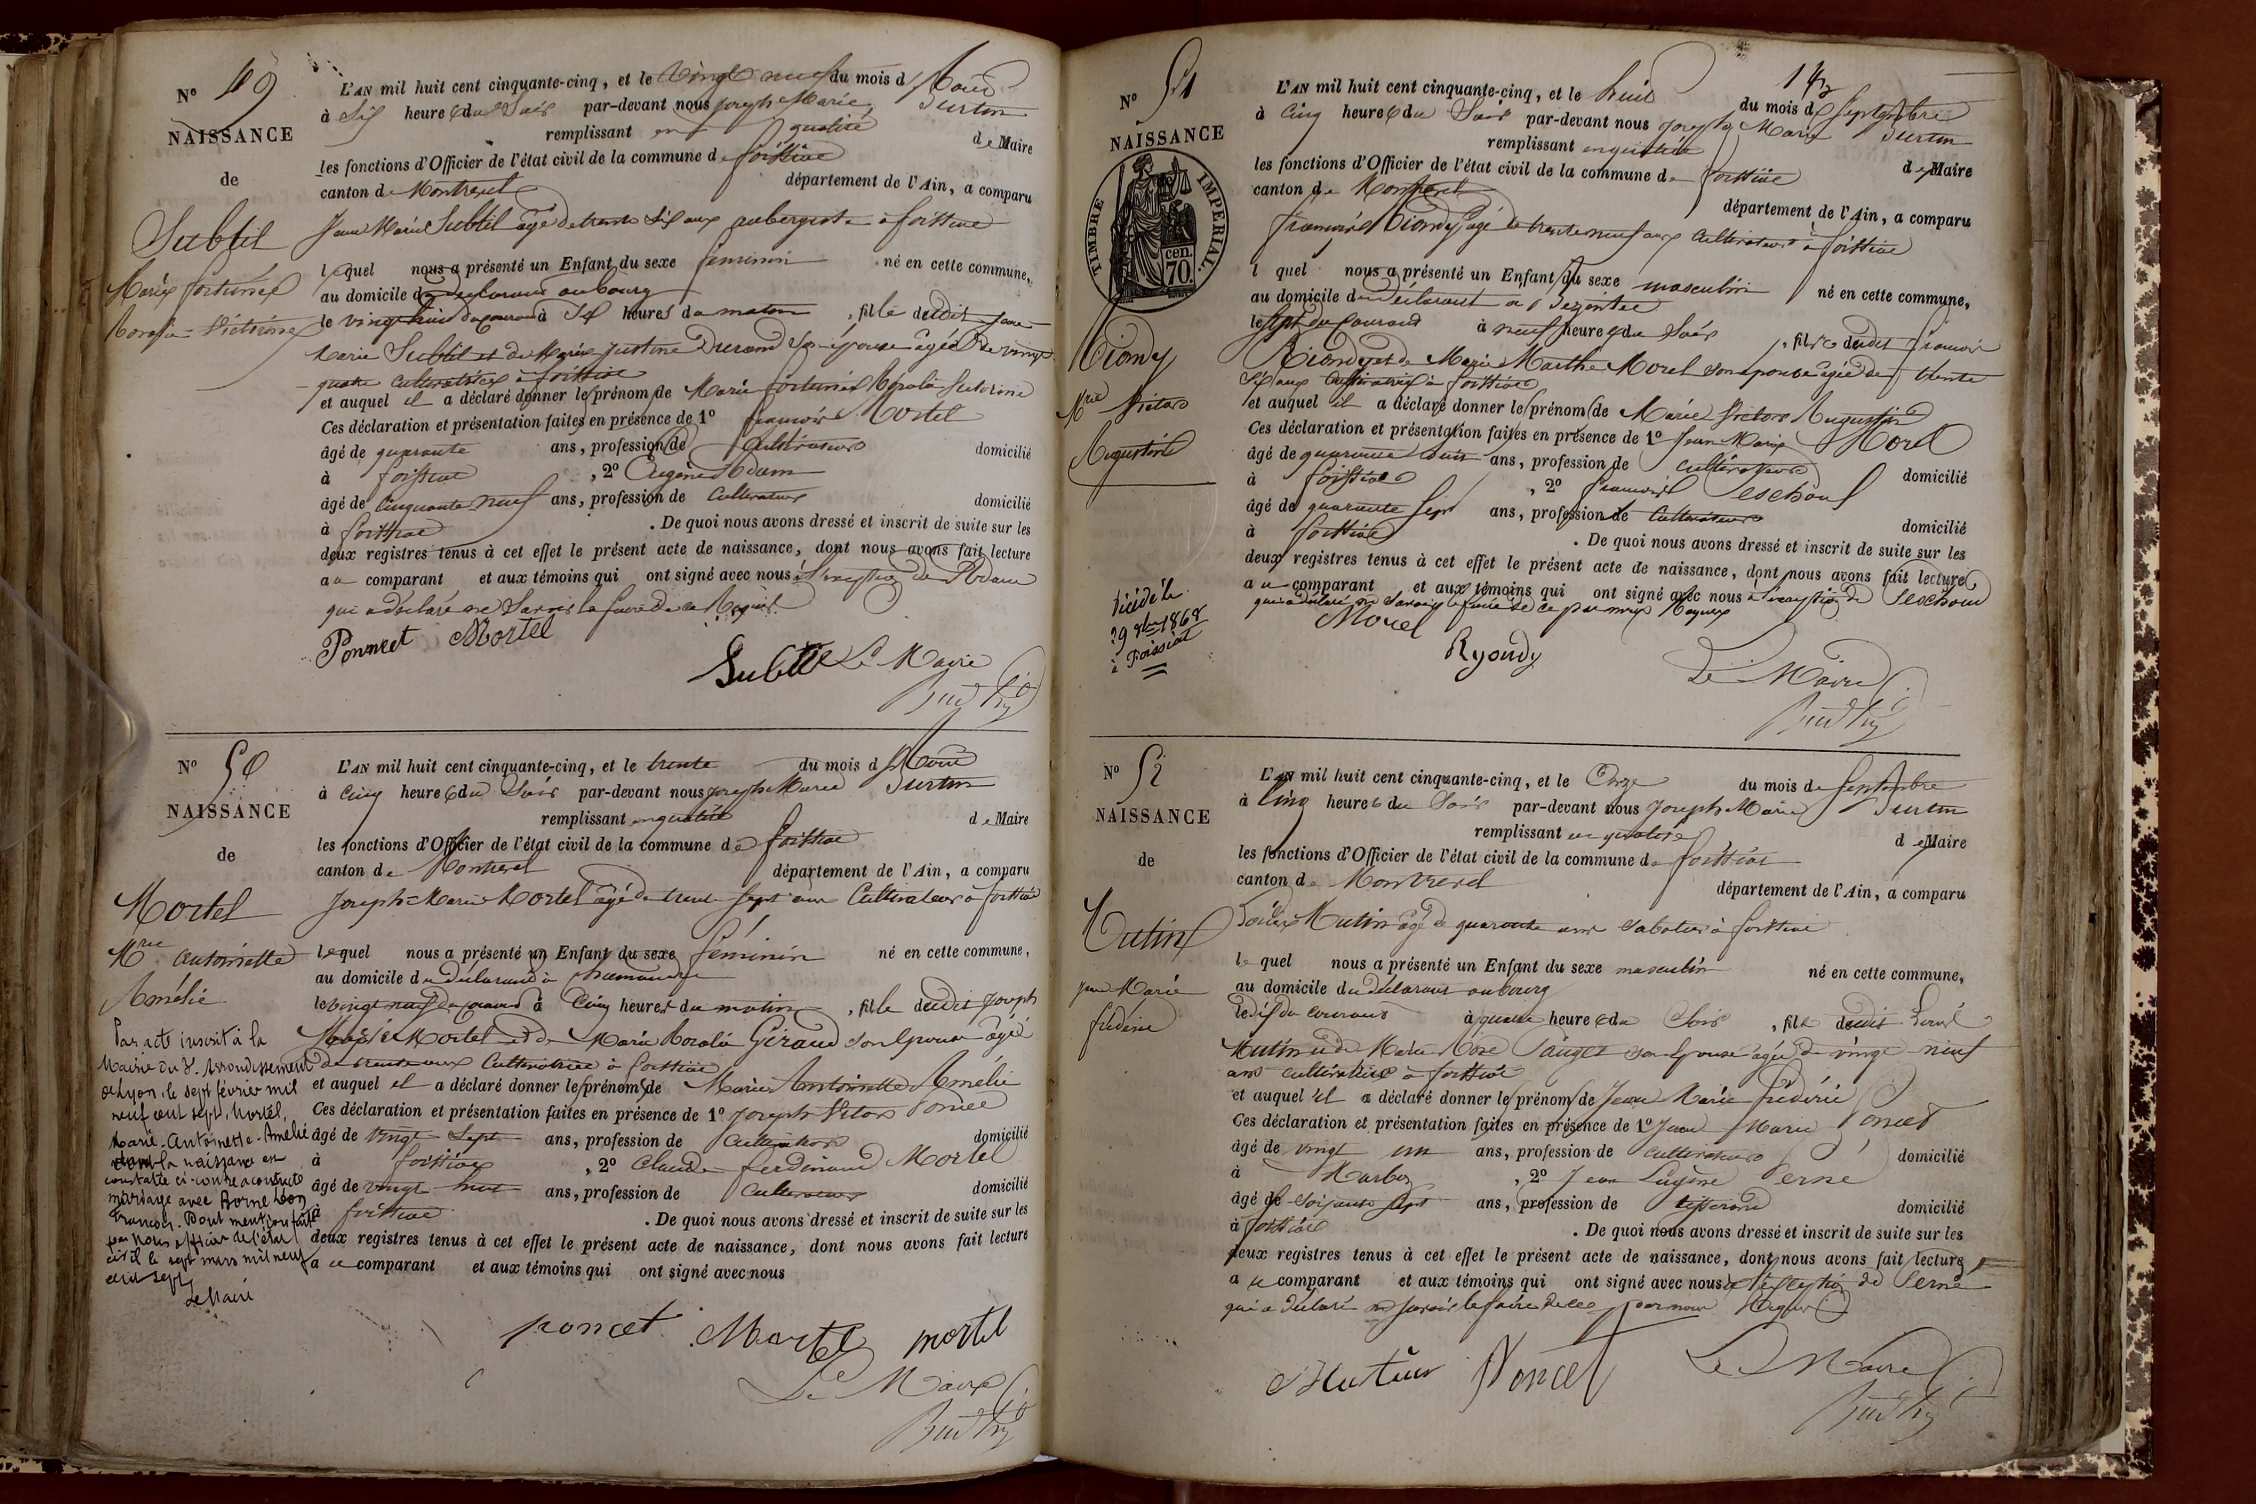 N° 49
NAISSANCE
de
Subtil
Marie fortunée
Rosalie Victorine
L'AN mil huit cent cinquante-cinq, et le vingt neuf du mois d'Août
à Six heures du Soir par-devant nous Joseph Marie Burtin
remplissant en qualité de Maire
les fonctions d'Officier de l'état civil de la commune de foissiat
canton de Montrevel département de l'Ain, a comparu
Jean Marie Subtil âgé de trente Six ans aubergiste à foissiat
lequel nous a présenté un Enfant du sexe féminin né en cette commune,
au domicile du déclarant au bourg
le vingt huit du courant à Six heures du matin, fille dudit Jean
Marie Subtil et de Marie Justine Durand Son épouse âgée de vingt
quatre cultivatrice à foissiat
et auquel il a déclaré donner les prénoms de Marie fortunée Rosalie Victorine
Ces déclaration et présentation faites en présence de 1° francois Mortel
âgé de quarante ans, profession de Cultivateur domicilié
à foissiat, 2° Eugène
âgé de Cinquante neuf ans, profession de Cultivateur domicilié
à foissiat. De quoi nous avons dressé et inscrit de suite sur les
deux registres tenus à cet effet le présent acte de naissance, dont nous avons fait lecture
au comparant et aux témoins qui ont signé avec nous à l'exception de
qui a déclaré ne Savoir le faire de ce Requis.
Mortel
Subtil Le Maire
N° 50
NAISSANCE
de
Mortel
Mrie Antoinette
Amélie
Par acte inscrit à la
Mairie du 3e Arrondissement
de Lyon, le sept février mil
neuf cent sept, Mortel,
Marie-Antoinette-Amélie
dont la naissance est
constatée ci-contre a contracté
mariage avec Borne Léon
François. Dont mention faite
par Nous officier de l'état
civil le sept mars mil neuf
cent sept
Le Maire
L'AN mil huit cent cinquante-cinq, et le trente du mois d'Août
à Cinq heures du Soir par-devant nous Joseph Marie Burtin
remplissant en qualité de Maire
les fonctions d'Officier de l'état civil de la commune de foissiat
canton de Montrevel département de l'Ain, a comparu
Joseph Marie Mortel âgé de trente Sept ans Cultivateur à foissiat
lequel nous a présenté un Enfant du sexe féminin né en cette commune,
au domicile du déclarant à
le vingt neuf du courant à Cinq heures du matin, fille dudit Joseph
Marie Mortel et de Marie Rosalie Giraud son Epouse âgée
de trente ans Cultivatrice à foissiat
et auquel il a déclaré donner les prénoms de Marie Antoinette Amélie
Ces déclaration et présentation faites en présence de 1° Joseph Victor Poncet
âgé de vingt Sept ans, profession de Cultivateur domicilié
à foissiat, 2° Claude ferdinand Mortel
âgé de vingt huit ans, profession de Cultivateur domicilié
à foissiat. De quoi nous avons dressé et inscrit de suite sur les
deux registres tenus à cet effet le présent acte de naissance, dont nous avons fait lecture
au comparant et aux témoins qui ont signé avec nous
poncet Mortel mortel
Le Maire
142
N° 51
NAISSANCE
TIMBRE IMPERIAL.
cen.
70.
Riondy
Mrie Victor
Augustin
Décédé le
29 8bre 1868
à Foissiat
L'AN mil huit cent cinquante-cinq, et le huit du mois de Septembre
à Cinq heures du Soir par-devant nous Joseph Marie Burtin
remplissant en qualité de Maire
les fonctions d'Officier de l'état civil de la commune de foissiat
canton de Montrevel département de l'Ain, a comparu
francois Riondy âgé de trente neuf ans Cultivateur à foissiat
lequel nous a présenté un Enfant du sexe masculin né en cette commune,
au domicile du déclarant à
le Sept du Courant à neuf heures du Soir, fils dudit francois
Riondy et de Marie Marthe Morel son épouse âgée de trente
Six ans Cultivatrice à foissiat
et auquel il a déclaré donner les prénoms de Marie Victor Augustin
Ces déclaration et présentation faites en présence de 1° Jean Marie Morel
âgé de quarante ans, profession de Cultivateur domicilié
à foissiat, 2° francois
âgé de quarante Sept ans, profession de Cultivateur domicilié
à foissiat. De quoi nous avons dressé et inscrit de suite sur les
deux registres tenus à cet effet le présent acte de naissance, dont nous avons fait lecture
au comparant et aux témoins qui ont signé avec nous à l'exception de
qui a déclaré ne Savoir le faire de ce par nous Requis
Morel
Ryondy
Le Maire
N° 52
NAISSANCE
de
Mutin
Jean Marie
fréderic
L'AN mil huit cent cinquante-cinq, et le Onze du mois de Septembre
à Cinq heures du Soir par-devant nous Joseph Marie Burtin
remplissant en qualité de Maire
les fonctions d'Officier de l'état civil de la commune de foissiat
canton de Montrevel département de l'Ain, a comparu
Mutin âgé de quarante ans Sabotier à foissiat
lequel nous a présenté un Enfant du sexe masculin né en cette commune,
au domicile du déclarant au bourg
le dix du courant à quatre heures du Soir, fils dudit
Mutin et de Marie Rose son Epouse âgée de vingt neuf
ans cultivatrice à foissiat
et auquel il a déclaré donner les prénoms de Jean Marie fréderic
Ces déclaration et présentation faites en présence de 1° Jean Marie Poncet
âgé de vingt un ans, profession de Cultivateur domicilié
à Marboz, 2° Jean Eugène Perne
âgé de Soixante Sept ans, profession de tisserand domicilié
à foissiat. De quoi nous avons dressé et inscrit de suite sur les
deux registres tenus à cet effet le présent acte de naissance, dont nous avons fait lecture
au comparant et aux témoins qui ont signé avec nous à l'exception de Perne
qui a déclaré ne savoir le faire de ce par nous Requis
Mutin Poncet Le Maire